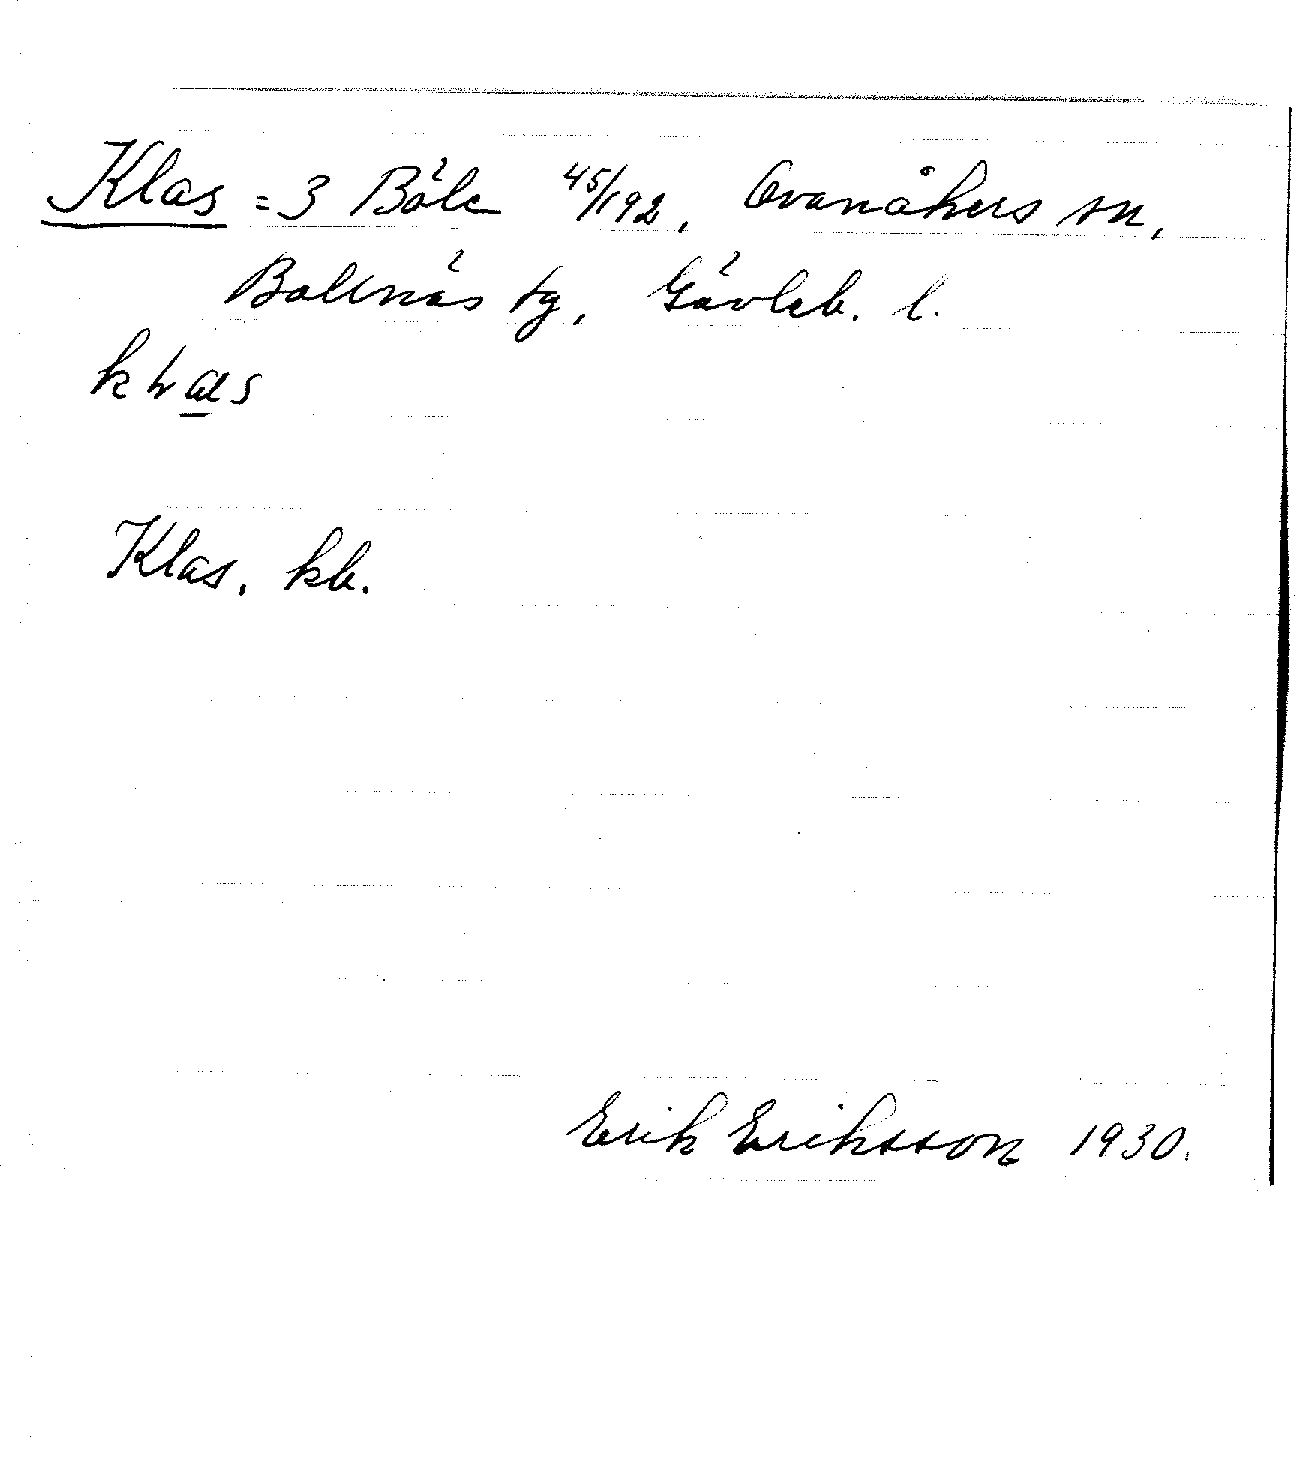 Klas = 3 Böle 45/192, Ovanåkers sn,
Bollnäs tg, Gävleb. l.
Klas. kb.
Erik Eriksson 1930.